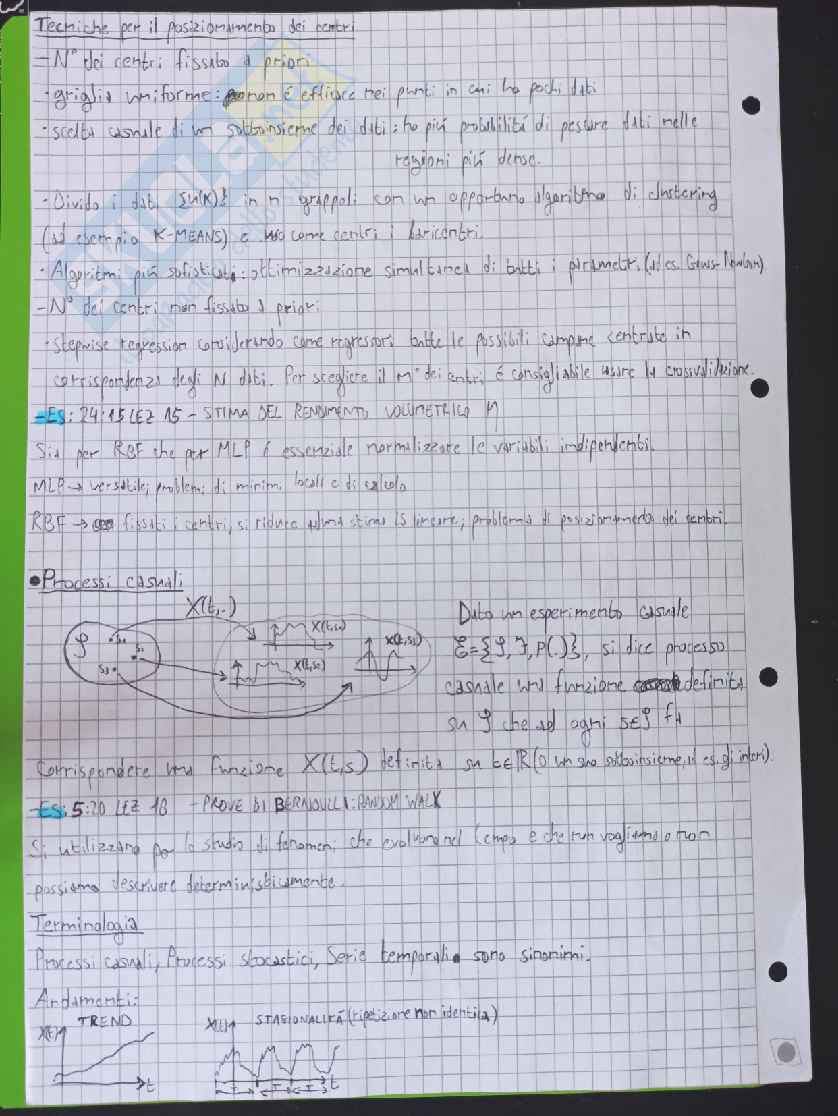 Tecniche per il posizionamento dei centri
- N° dei centri fissato a priori
· griglia uniforme: non é efficace nei punti in cui ho pochi dati
· scelta casuale di un sottoinsieme dei dati: ho piú probabilitá di pescare dati nelle
regioni piú dense.
· Divido i dati {u(K)} in n grappoli con un opportuno algoritmo di clustering
(ad esempio K-MEANS) e uso come centri i baricentri.
· Algoritmi piú sofisticati: ottimizzazione simultanea di tutti i parametri (ad es. Gauss-Newton)
- N° dei centri non fissato a priori
· stepwise regression considerando come regressori tutte le possibili campane centrate in
corrispondenza degli N dati. Per scegliere il n° dei centri é consigliabile usare la crossvalidazione.
- ES: 24:15 LEZ 15 - STIMA DEL RENDIMENTO VOLUMETRICO η
Sia per RBF che per MLP é essenziale normalizzare le variabili indipendenti.
MLP → versatile; problemi di minimi locali e di calcolo
RBF → fissati i centri, si riduce ad una stima LS lineare; problema di posizionamento dei centri.
• Processi casuali
X(t,·)
X(t,s₁)
X(t,s₂)
X(t,s₃)
S
s₃
Dato un esperimento casuale
E={S, F, P(.)}, si dice processo
casuale una funzione definita
su S che ad ogni s∈S fa
corrispondere una funzione X(t,s) definita su t∈ℝ (o un suo sottoinsieme, ad es. gli interi).
- ES: 5:20 LEZ 16 - PROVE DI BERNOULLI: RANDOM WALK
Si utilizzano per lo studio di fenomeni che evolvono nel tempo e che non vogliamo o non
possiamo descrivere deterministicamente.
Terminologia
Processi casuali, Processi stocastici, Serie temporali sono sinonimi.
Andamenti:
X(t) TREND
t
X(t) STAGIONALITÁ (ripetizione non identica)
T T T t